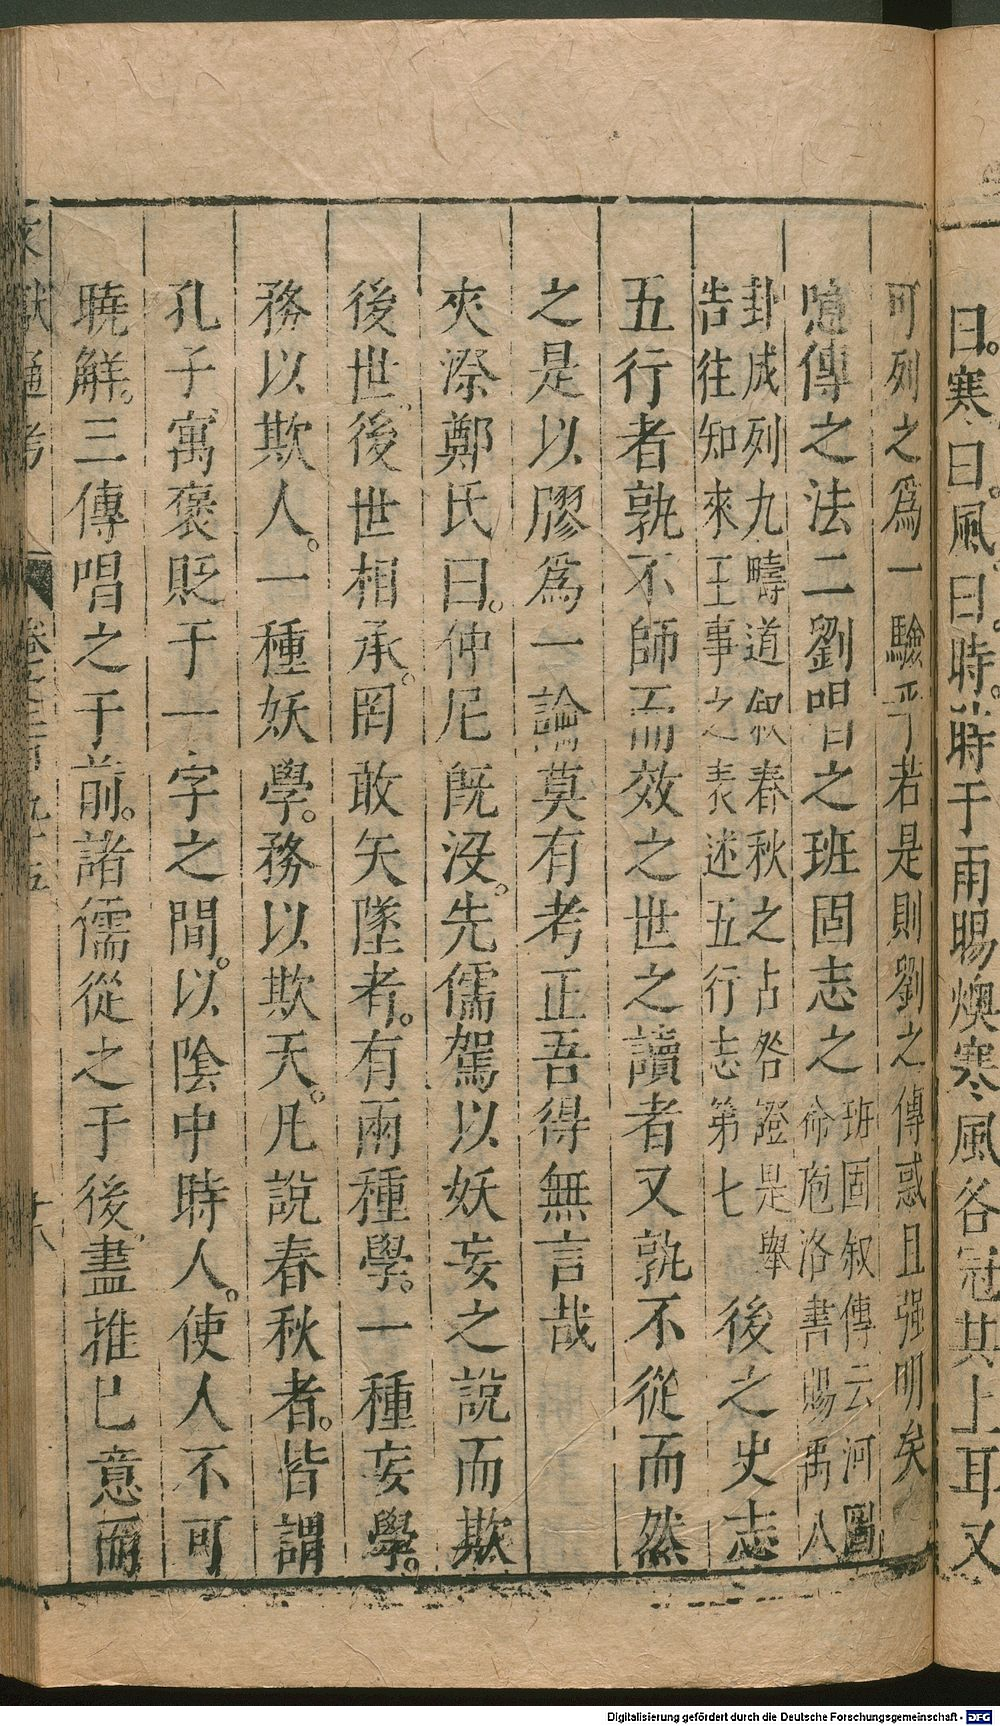 曰寒曰風曰時蒔于雨暘燠寒風各冠其上耳又
可列之爲一驗乎若是則劉之傳惑且强明矣
噫傳之法二劉唱之班固志之班固叙傳云河圖命庖洛書賜禹八
卦成列九疇逌叙春秋之占咎證是舉告往知來王事之表述五行志第七後之史志
五行者孰不師而效之世之讀者又孰不從而然
之是以膠爲一論莫有考正吾得無言哉
夾漈鄭氏曰仲尼既沒先儒駕以妖妄之說而欺
後世後世相承罔敢失墜者有兩種學一種妄學
務以欺人一種妖學務以欺天凡說春秋者皆謂
孔子寓褒貶于一字之間以陰中時人使人不可
曉解三傳唱之于前諸儒從之于後盡推己意而
文獻通考 卷之二百九十五 十八
Digitalisierung gefördert durch die Deutsche Forschungsgemeinschaft - DFG